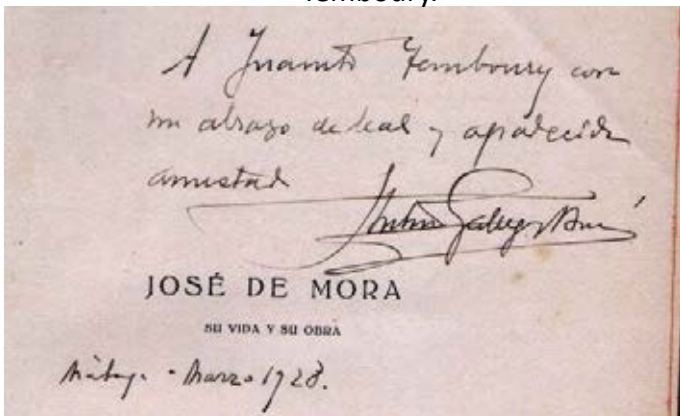 Temboury.
A Juanito Temboury con
un abrazo de leal y agradecida
amistad
Antonio Gallego Burín
JOSÉ DE MORA
SU VIDA Y SU OBRA
Málaga - Marzo 1928.